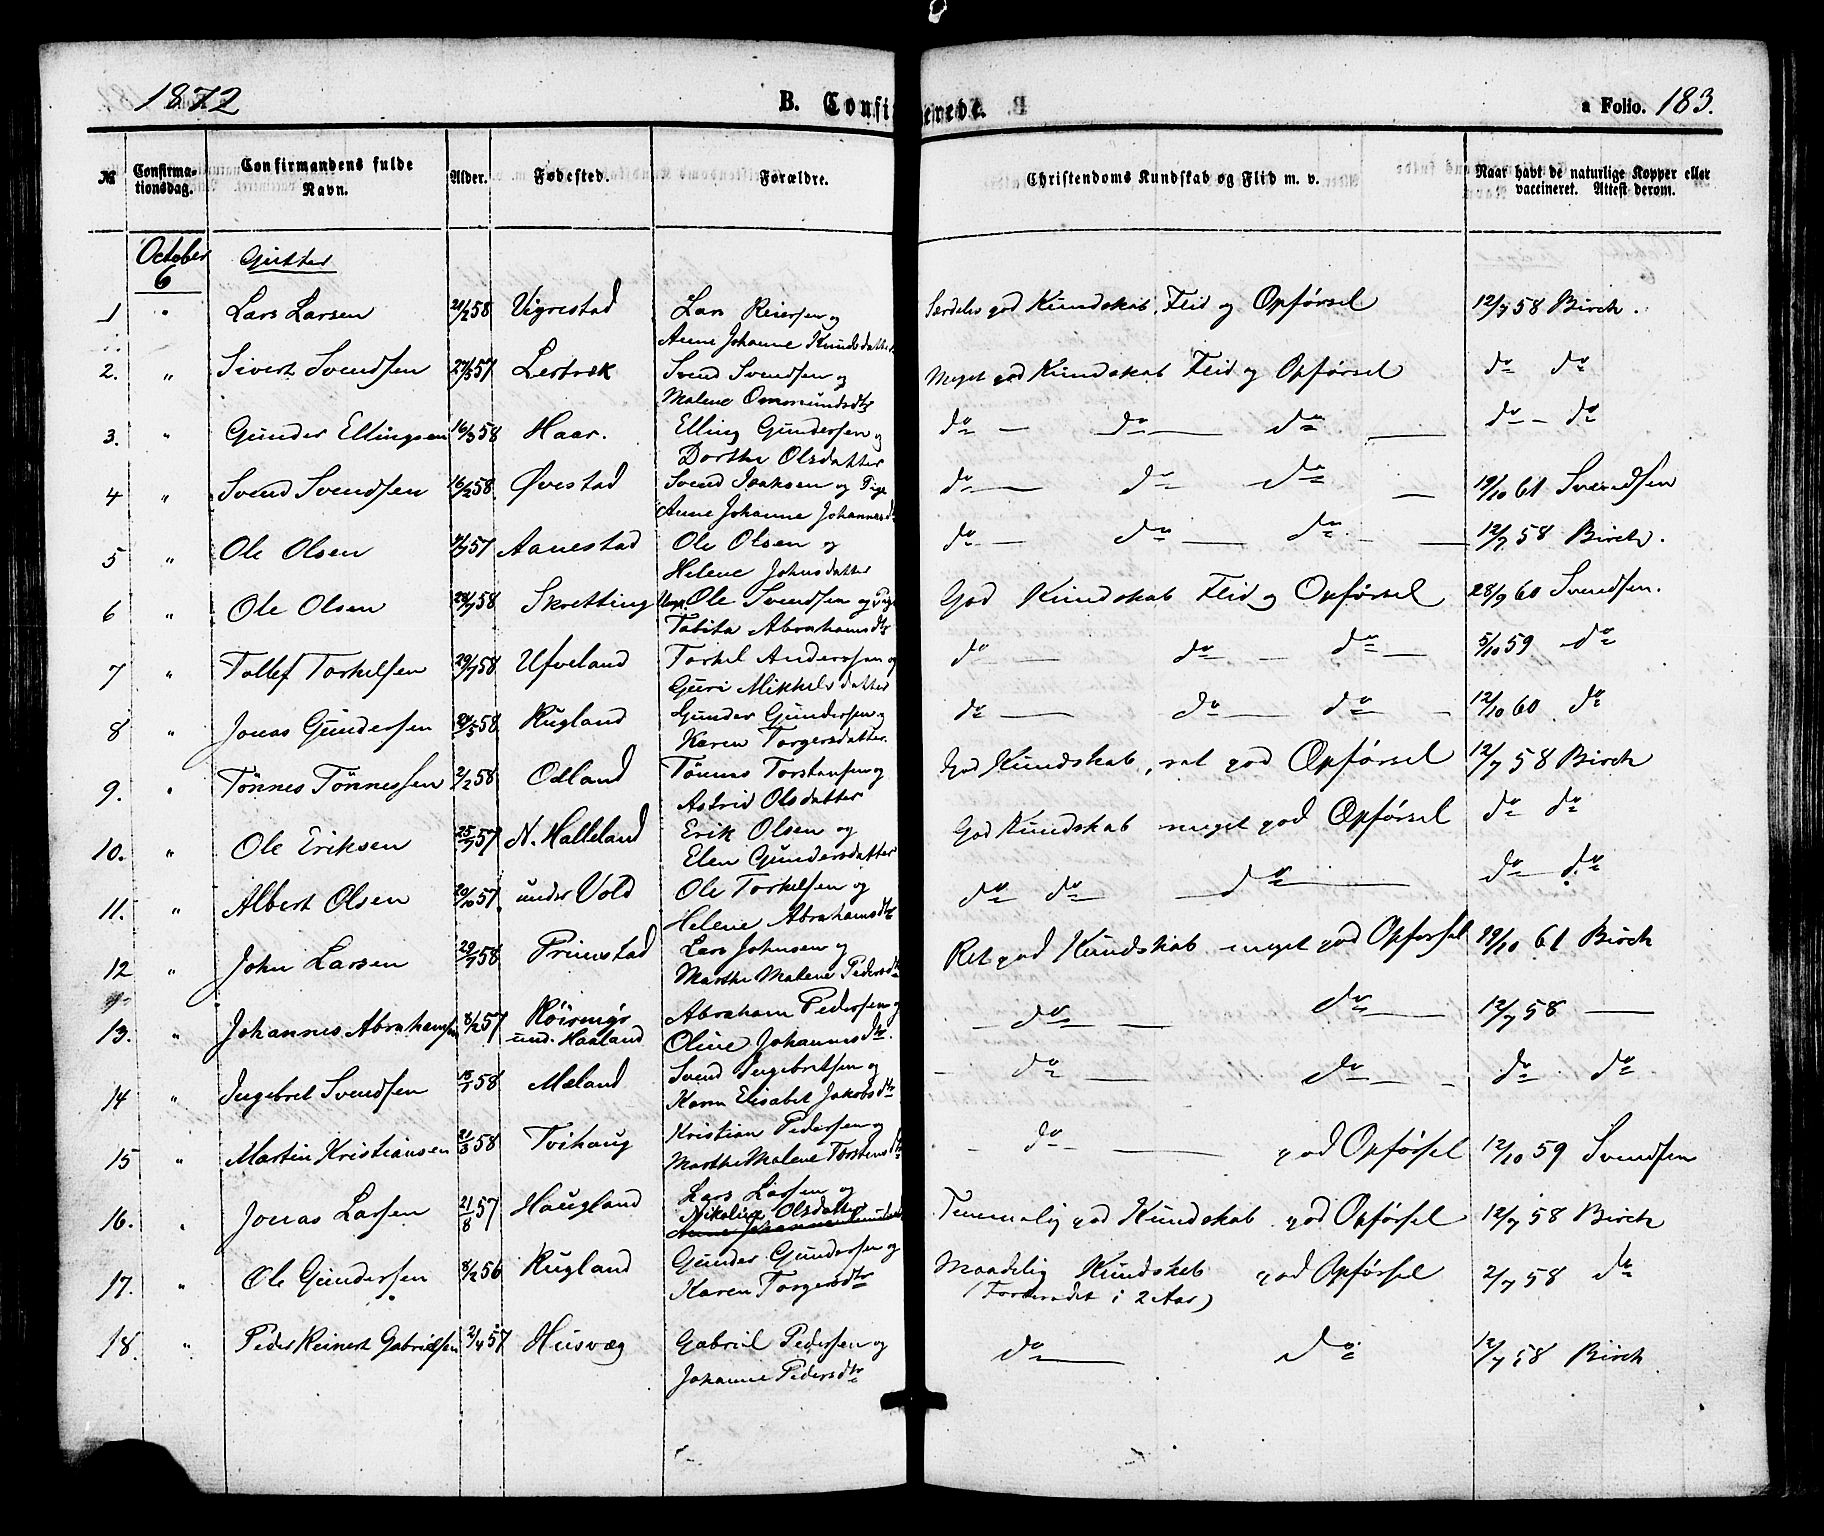 1872 B. Confirmerede. a Folio. 183.
№ Confirmationsdag. Confirmandens fulde Navn. Alder. Fødested. Forældre. Christendoms Kundskab og Flid m. v. Naar havt de naturlige Kopper eller vaccineret. Attest derom.
October 6 Gutter
1 " Lars Larsen 21/2 58 Vigrestad Lars Reiersen og Særdeles god Kundskab, Flid og Opførsel 12/7 58 Birch.
Anne Johanne Knudsdatter
2. " Sivert Svendsen 27/3 57 Svend Svendsen og Meget god Kundskab Flid og Opførsel do do
Malene Ommundsdtr
3. " Gunder Ellingsen 16/3 58 Haar. Elling Gundersen og do — do — do — do - do
Dorthe Olsdatter
4 " Svend Svendsen 16/2 58 Øvestad Svend Isaksen og Pige do — do — do — 19/10 61 Svendsen
Anne Johanne Johannesdtr
5 " Ole Olsen 57 Aanestad Ole Olsen og do — do — do — 12/7 58 Birch.
Helene Johnsdatter
6 " Ole Olsen 58 Skretting Ungk. Ole Svendsen og Pige God Kundskab Flid og Opførsel 28/9 60 Svendsen.
Tobita Abrahamsdtr
7 " Tollef Torkelsen 29/7 58 Ufveland Torkel Anderssen og do — do — do — 5/10 59 do
Guri Mikkelsdatter
8 " Jonas Gundersen 58 Rugland Gunder Gundersen og do — do — do — 12/10 60 do
Karen Torgersdatter.
9. " Tönnes Tönnessen 2/2 58 Odland Tönnes Torstensen og God Kundskab, ret god Opførsel 12/7 58 Birch
Astrid Olsdatter
10. " Ole Eriksen 25/7 57 N. Halleland Erik Olsen og God Kundskab meget god Opførsel do do
Elen Gundersdatter
11. " Albert Olsen 20/10 57 under Vold Ole Torkelsen og do do — do — do — do
Helene Abrahamsdtr
12 " John Larsen 29/7 58 Primstad Lars Johnsen og Ret god Kundskab meget god Opførsel 19/10 61 Birch
Marthe Malene Pedersdtr
13. " Johannes Abrahamsen 8/2 57 und. Haaland Abraham Pedersen og — do — do — 12/7 58 —
Oline Johannesdtr.
14 " Ingebret Svendsen 58 Mæland Svend Ingebretsen og - do — do — do do
Karen Elisabet Jakobsdtr
15 " Martin Kristiansen 21/3 58 Tvihaug Kristian Pedersen og - do — god Opførsel 12/10 59 Svendsen
Marthe Malene Torstensdtr
16. " Jonas Larsen 21/8 57 Haugland Lars Larsen og Temmelig god Kundskab god Opførsel 12/7 58 Birch
Nikoline Olsdatter
17. " Ole Gundersen 8/2 56 Rugland Gunder Gundersen og Maadelig Kundskab god Opførsel 2/7 58 do
Karen Torgersdtr (Forberedet i 2 Aar)
18. " Peder Reinert Gabrielsen 2/4 57 Husvæg Gabriel Pedersen og do — do 12/7 58 Birch
Johanne Pedersdtr